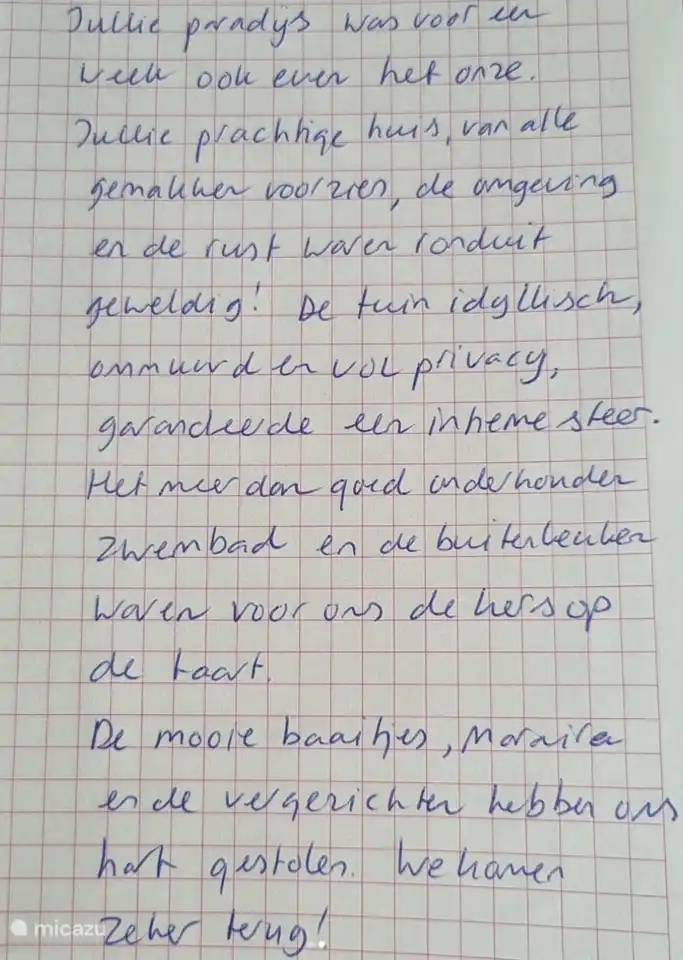 Jullie paradijs was voor een
week ook even het onze.
Jullie prachtige huis, van alle
gemakken voorzien, de omgeving
en de rust waren ronduit
geweldig! De tuin idyllisch,
ommuurd en vol privacy,
garandeerde een intieme sfeer.
Het meer dan goed onderhouden
zwembad en de buitenkeuken
waren voor ons de kers op
de taart.
De mooie baaitjes, Moraira
en de vergezichten hebben ons
hart gestolen. We komen
zeker terug!
micazu